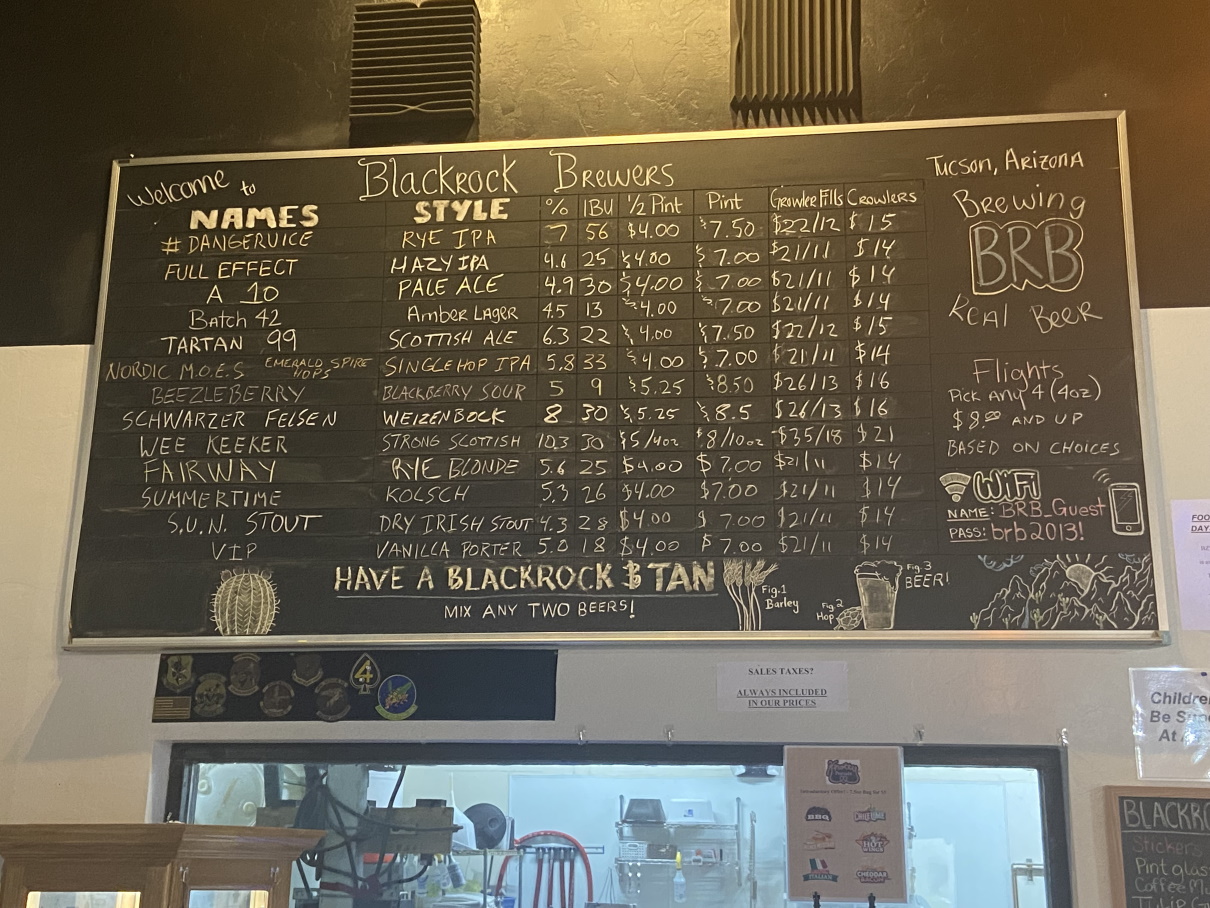 Welcome to Blackrock Brewers
Tucson, Arizona
NAMES STYLE % IBU ½ Pint Pint Growler Fills Crowlers
# DANGERVICE RYE IPA 7 56 $4.00 $7.50 $22/12 $15
FULL EFFECT HAZY IPA 4.6 25 $4.00 $7.00 $21/11 $14
A 10 PALE ALE 4.9 30 $4.00 $7.00 $21/11 $14
Batch 42 Amber Lager 4.5 13 $4.00 $7.00 $21/11 $14
TARTAN 99 SCOTTISH ALE 6.3 22 $4.00 $7.50 $22/12 $15
NORDIC M.O.E.S. EMERALD SPIRE HOPS SINGLE HOP IPA 5.8 33 $4.00 $7.00 $21/11 $14
BEEZLEBERRY BLACKBERRY SOUR 5 9 $5.25 $8.50 $26/13 $16
SCHWARZER FELSEN WEIZENBOCK 8 30 $5.25 $8.5 $26/13 $16
WEE KEEKER STRONG SCOTTISH 10.3 30 $5/4oz $8/10oz $35/18 $21
FAIRWAY RYE BLONDE 5.6 25 $4.00 $7.00 $21/11 $14
SUMMERTIME KOLSCH 5.3 26 $4.00 $7.00 $21/11 $14
S.U.N. STOUT DRY IRISH STOUT 4.3 28 $4.00 $7.00 $21/11 $14
VIP VANILLA PORTER 5.0 18 $4.00 $7.00 $21/11 $14
HAVE A BLACKROCK & TAN
MIX ANY TWO BEERS!
Fig.1
Barley
Fig 2
Hop
Fig. 3
BEER!
Brewing
BRB
Real Beer
Flights
Pick Any 4 (4oz)
$8.00 AND UP
BASED ON CHOICES
WiFi
NAME: BRB_Guest
PASS: brb2013!
4
SALES TAXES?
ALWAYS INCLUDED
IN OUR PRICES
BBQ
HOT WINGS
ITALIAN
CHEDDAR
Childre
Be Sup
At A
FOO
DAY
BLACKRO
Stickers
Pint glas
Coffee Mu